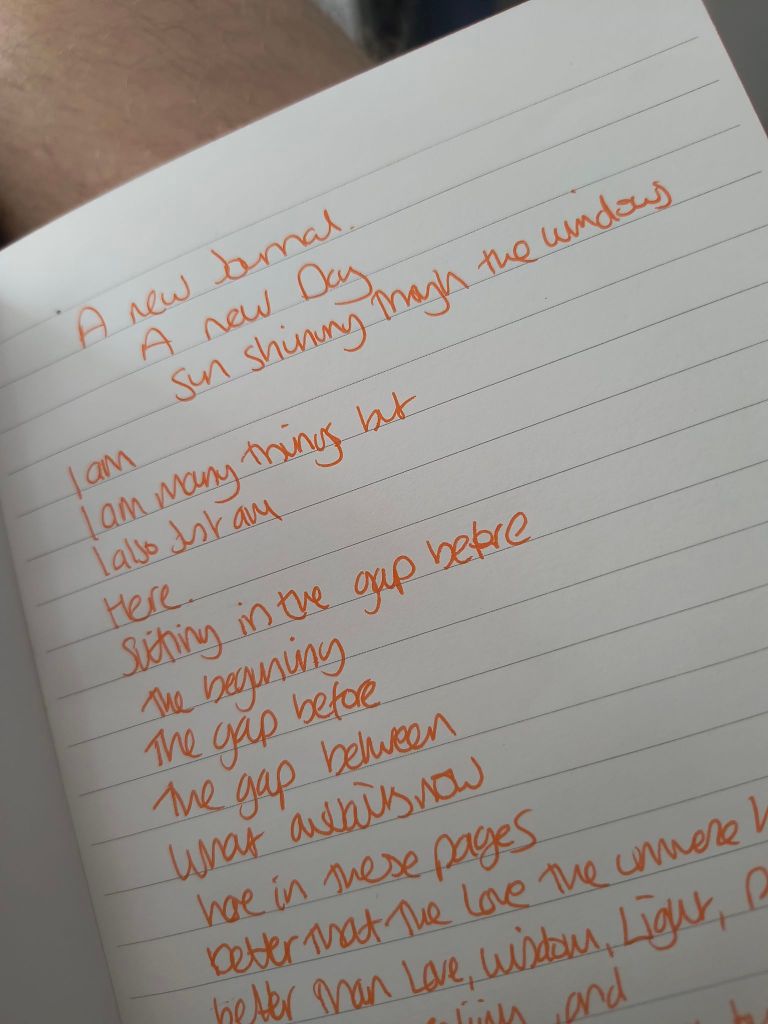 A new Journal.
A new Day
Sun shining through the windows
I am
I am many things but
I also Just am
Here.
Sitting in the gap before
The beginning
The gap before
The gap between
What awaits now
here in these pages
better that the Love the
better than Love, wisdom, Light,
and